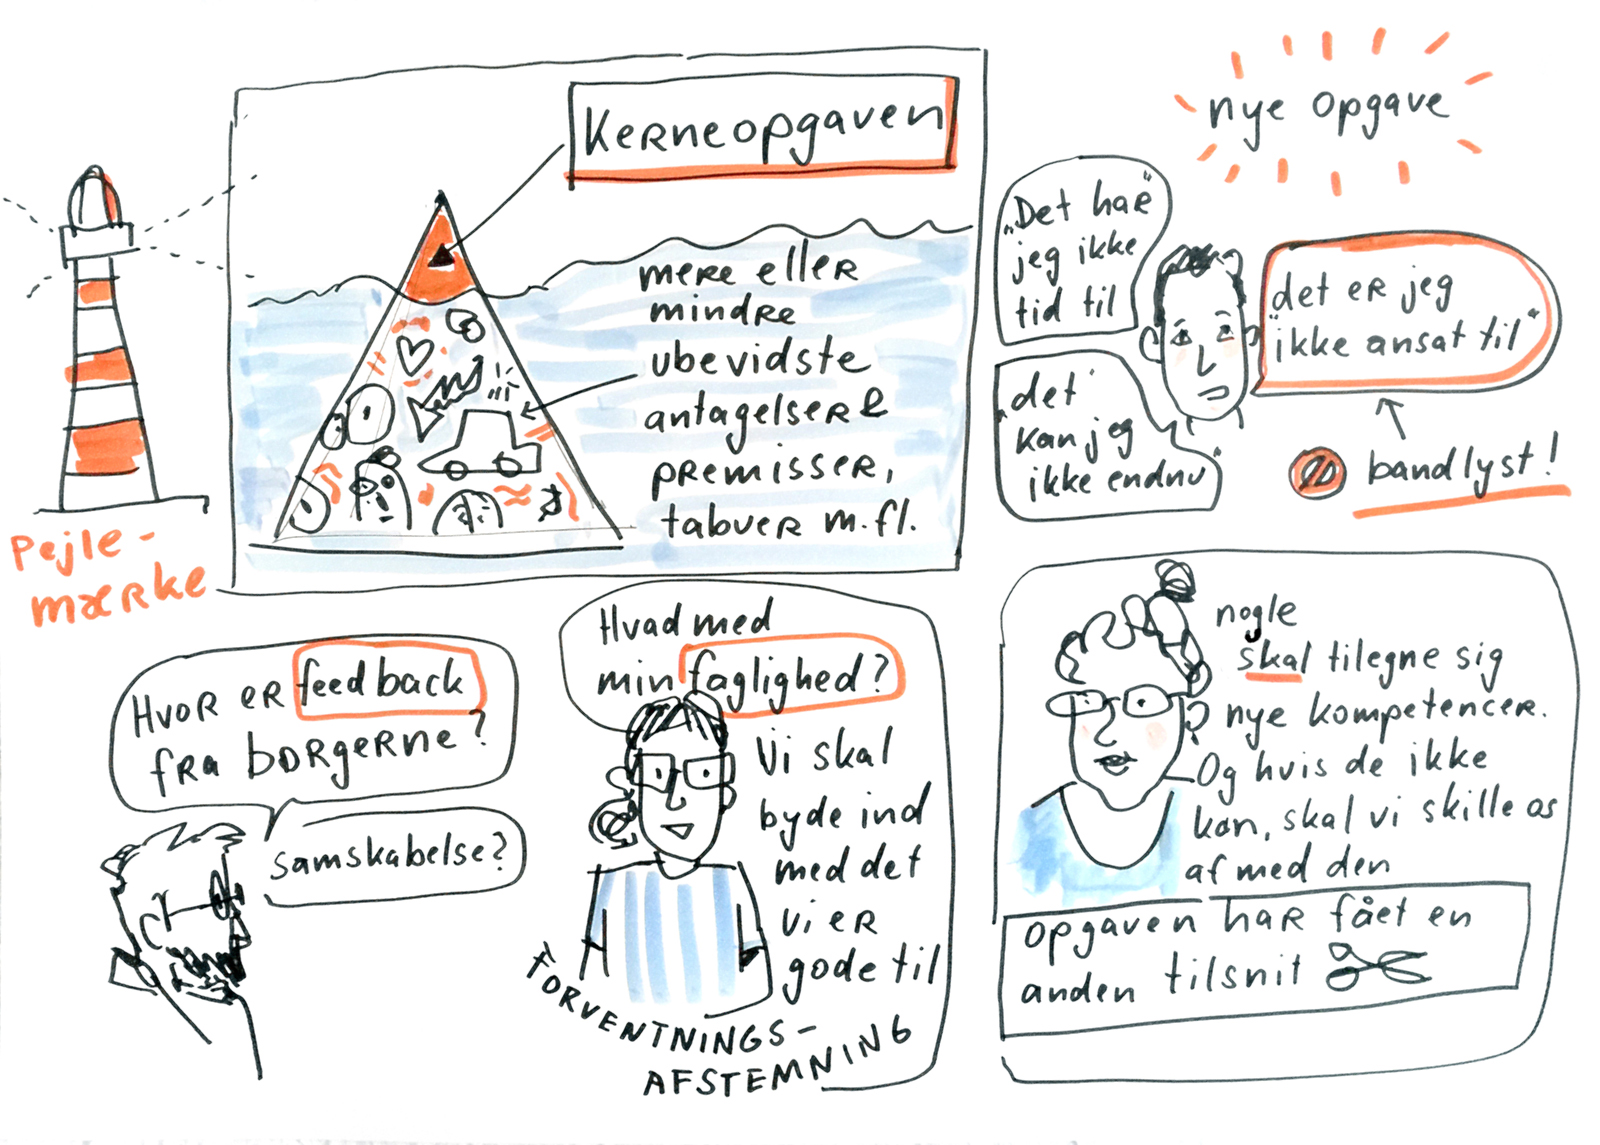 Kerneopgaven
mere eller
mindre
ubevidste
antagelser &
premisser,
tabuer m.fl.
Pejle-
mærke
nye opgave
"Det har"
jeg ikke
tid til
"det
kan jeg
ikke endnu"
"det er jeg
ikke ansat til"
bandlyst!
Hvor er feedback
fra borgerne?
samskabelse?
Hvad med
min faglighed?
Vi skal
byde ind
med det
vi er
gode til
FORVENTNINGS-
AFSTEMNING
nogle
skal tilegne sig
nye kompetencer.
Og hvis de ikke
kan, skal vi skille os
af med den
opgaven har fået en
anden tilsnit